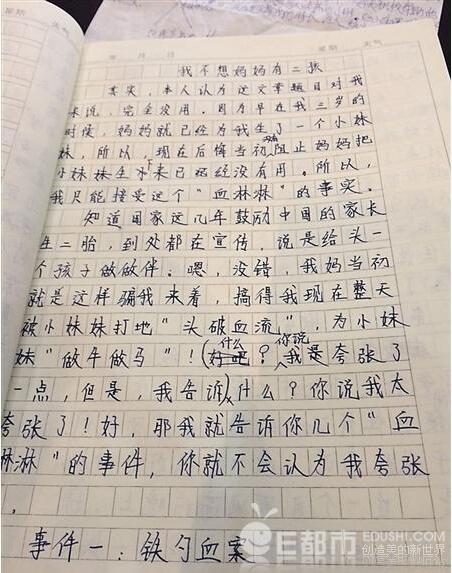 星期 天气
年 月 日 星期 天气
我不想妈妈有二孩
其实，本人认为这文章题目对我
来说，完全没用。因为早在我三岁的
时候，妈妈就已经为我生了一个小妹
妹，所以，现在后悔当初没有阻止妈妈把
小妹妹生下来已经没有用。所以，
我只能接受这个“血淋淋”的事实。
知道国家这几年鼓励中国的家长
生二胎，到处都在宣传，说是给头一
个孩子做做伴。嗯，没错，我妈当初
就是这样骗我来着，搞得我现在整天
被小妹妹打地“头破血流”，为小妹
妹“做牛做马”！什么？你说我是夸张了
一点，但是，我告诉什么？你说我太
夸张了！好，那我就告诉你几个“血
淋淋”的事件，你就不会认为我夸张
。
事件一：铁勺血案
E都市 EDUSHI.COM
创造美的新世界